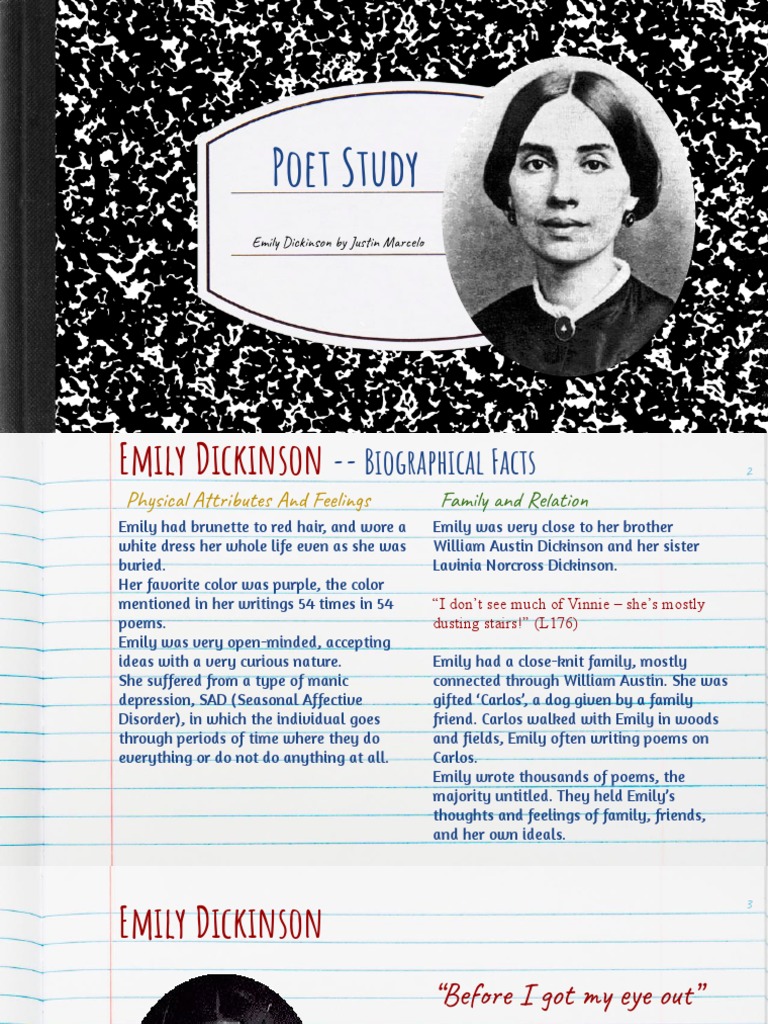 Poet Study
Emily Dickinson by Justin Marcelo
Emily Dickinson -- Biographical Facts
2
Physical Attributes And Feelings
Emily had brunette to red hair, and wore a
white dress her whole life even as she was
buried.
Her favorite color was purple, the color
mentioned in her writings 54 times in 54
poems.
Emily was very open-minded, accepting
ideas with a very curious nature.
She suffered from a type of manic
depression, SAD (Seasonal Affective
Disorder), in which the individual goes
through periods of time where they do
everything or do not do anything at all.
Family and Relation
Emily was very close to her brother
William Austin Dickinson and her sister
Lavinia Norcross Dickinson.
“I don’t see much of Vinnie – she’s mostly
dusting stairs!” (L176)
Emily had a close-knit family, mostly
connected through William Austin. She was
gifted ‘Carlos’, a dog given by a family
friend. Carlos walked with Emily in woods
and fields, Emily often writing poems on
Carlos.
Emily wrote thousands of poems, the
majority untitled. They held Emily’s
thoughts and feelings of family, friends,
and her own ideals.
3
Emily Dickinson
“Before I got my eye out”